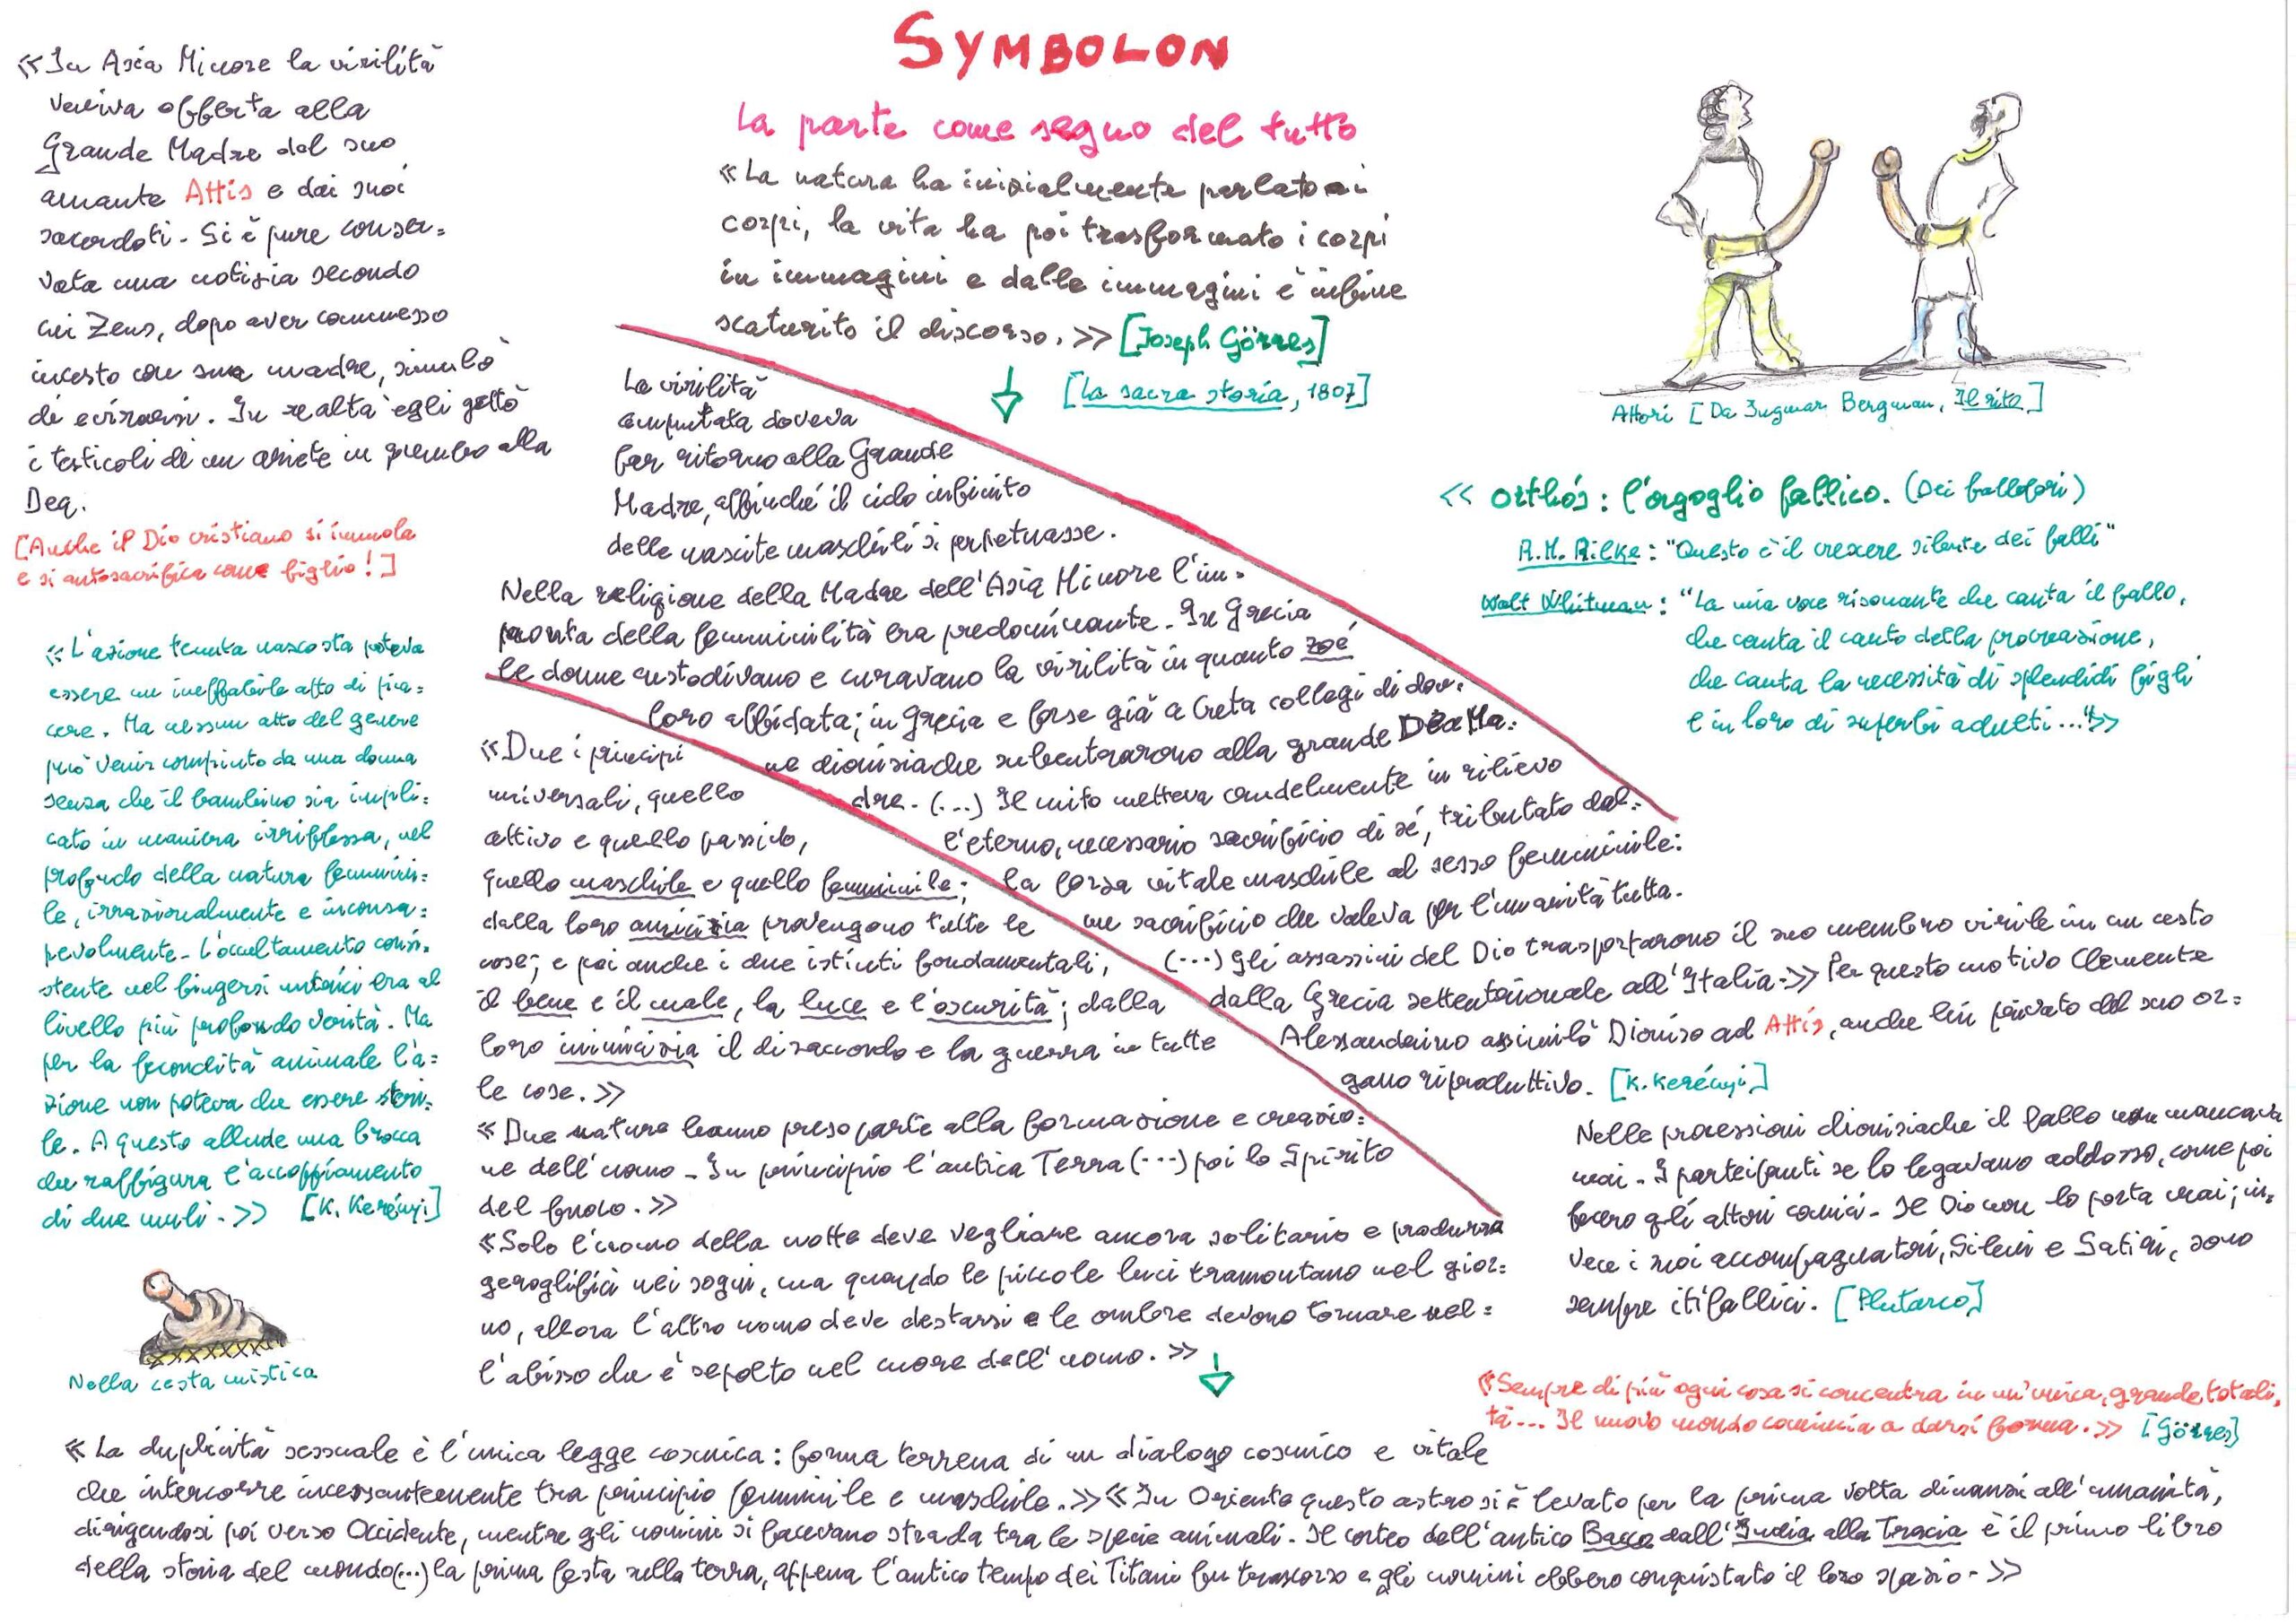 SYMBOLON
La parte come segno del tutto
«La natura ha inizialmente parlato ai
corpi, la vita ha poi trasformato i corpi
in immagini e dalle immagini è infine
scaturito il discorso.» [Joseph Görres]
[La sacra storia, 1807]
«In Asia Minore la virilità
veniva offerta alla
Grande Madre dal suo
amante Attis e dai suoi
sacerdoti. Si è pure conser=
vata una notizia secondo
cui Zeus, dopo aver commesso
incesto con sua madre, simulò
di evirarsi. In realtà egli gettò
i testicoli di un ariete in grembo alla
Dea.
[Anche il Dio cristiano si immola
e si autosacrifica come figlio!]
«L'azione tenuta nascosta poteva
essere un ineffabile atto di pia=
cere. Ma nessun atto del genere
può venir compiuto da una donna
senza che il bambino sia impli=
cato in maniera irriflessa, nel
profondo della natura femmini=
le, irrazionalmente e inconsa=
pevolmente. L'occultamento consi=
stente nel fingersi nutrici era al
livello più profondo verità. Ma
per la fecondità animale l'a=
zione non poteva che essere steri=
le. A questo allude una brocca
che raffigura l'accoppiamento
di due muli.» [K. Kerényi]
Nella cesta mistica
La virilità
amputata doveva
far ritorno alla Grande
Madre, affinché il ciclo infinito
delle nascite maschili si perpetuasse.
Nella religione della Madre dell'Asia Minore l'im=
pronta della femminilità era predominante. In Grecia
le donne custodivano e curavano la virilità in quanto zoé
loro affidata; in Grecia e forse già a Creta collegi di don=
ne dionisiache subentrarono alla grande Dea Ma=
dre. (...) Il mito metteva crudelmente in rilievo
l'eterno, necessario sacrificio di sé, tributato dal=
la forza vitale maschile al sesso femminile:
un sacrificio che valeva per l'umanità tutta.
(...) Gli assassini del Dio trasportarono il suo membro virile in un cesto
dalla Grecia settentrionale all'Italia.» Per questo motivo Clemente
Alessandrino assimilò Dioniso ad Attis, anche lui privato del suo or=
gano riproduttivo. [K. Kerényi]
«Due i principi
universali, quello
attivo e quello passivo,
quello maschile e quello femminile;
dalla loro amicizia provengono tutte le
cose; e poi anche i due istinti fondamentali,
il bene e il male, la luce e l'oscurità; dalla
loro inimicizia il disaccordo e la guerra in tutte
le cose.»
«Due nature hanno preso parte alla formazione e creazio=
ne dell'uomo. In principio l'antica Terra (...) poi lo Spirito
del fuoco.»
«Solo l'uomo della notte deve vegliare ancora solitario e produrre
geroglifici nei sogni, ma quando le piccole luci tramontano nel gior=
no, allora l'altro uomo deve destarsi e le ombre devono tornare nel=
l'abisso che è sepolto nel cuore dell'uomo.»
Attori [Da Ingmar Bergman, Il rito]
«Orthós: l'orgoglio fallico. (Dei fallofori)
R.M. Rilke: "Questo è il crescere silente dei falli"
Walt Whitman: "La mia voce risonante che canta il fallo,
che canta il canto della procreazione,
che canta la necessità di splendidi figli
e in loro di superbi adulti..."»
Nelle processioni dionisiache il fallo non mancava
mai. I partecipanti se lo legavano addosso, come poi
fecero gli attori comici. Il Dio non lo porta mai; in=
vece i suoi accompagnatori, Sileni e Satiri, sono
sempre itifallici. [Plutarco]
«Sempre di più ogni cosa si concentra in un'unica, grande, totali=
tà... Il nuovo mondo comincia a darsi forma.» [Görres]
«La duplicità sessuale è l'unica legge cosmica: forma terrena di un dialogo cosmico e vitale
che intercorre incessantemente tra principio femminile e maschile.» «In Oriente questo astro si è levato per la prima volta dinanzi all'umanità,
dirigendosi poi verso Occidente, mentre gli uomini si facevano strada tra le specie animali. Il corteo dell'antico Bacco dall'India alla Tracia è il primo libro
della storia del mondo (...) la prima festa sulla terra, appena l'antico tempo dei Titani fu trascorso e gli uomini ebbero conquistato il loro spazio.»